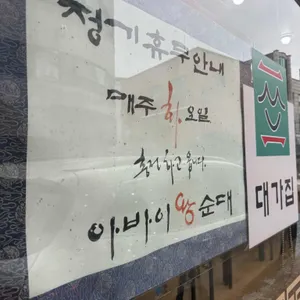 정기휴무안내
매주 화.요일
휴무하고 옵니다.
아바이왕순대
대가집